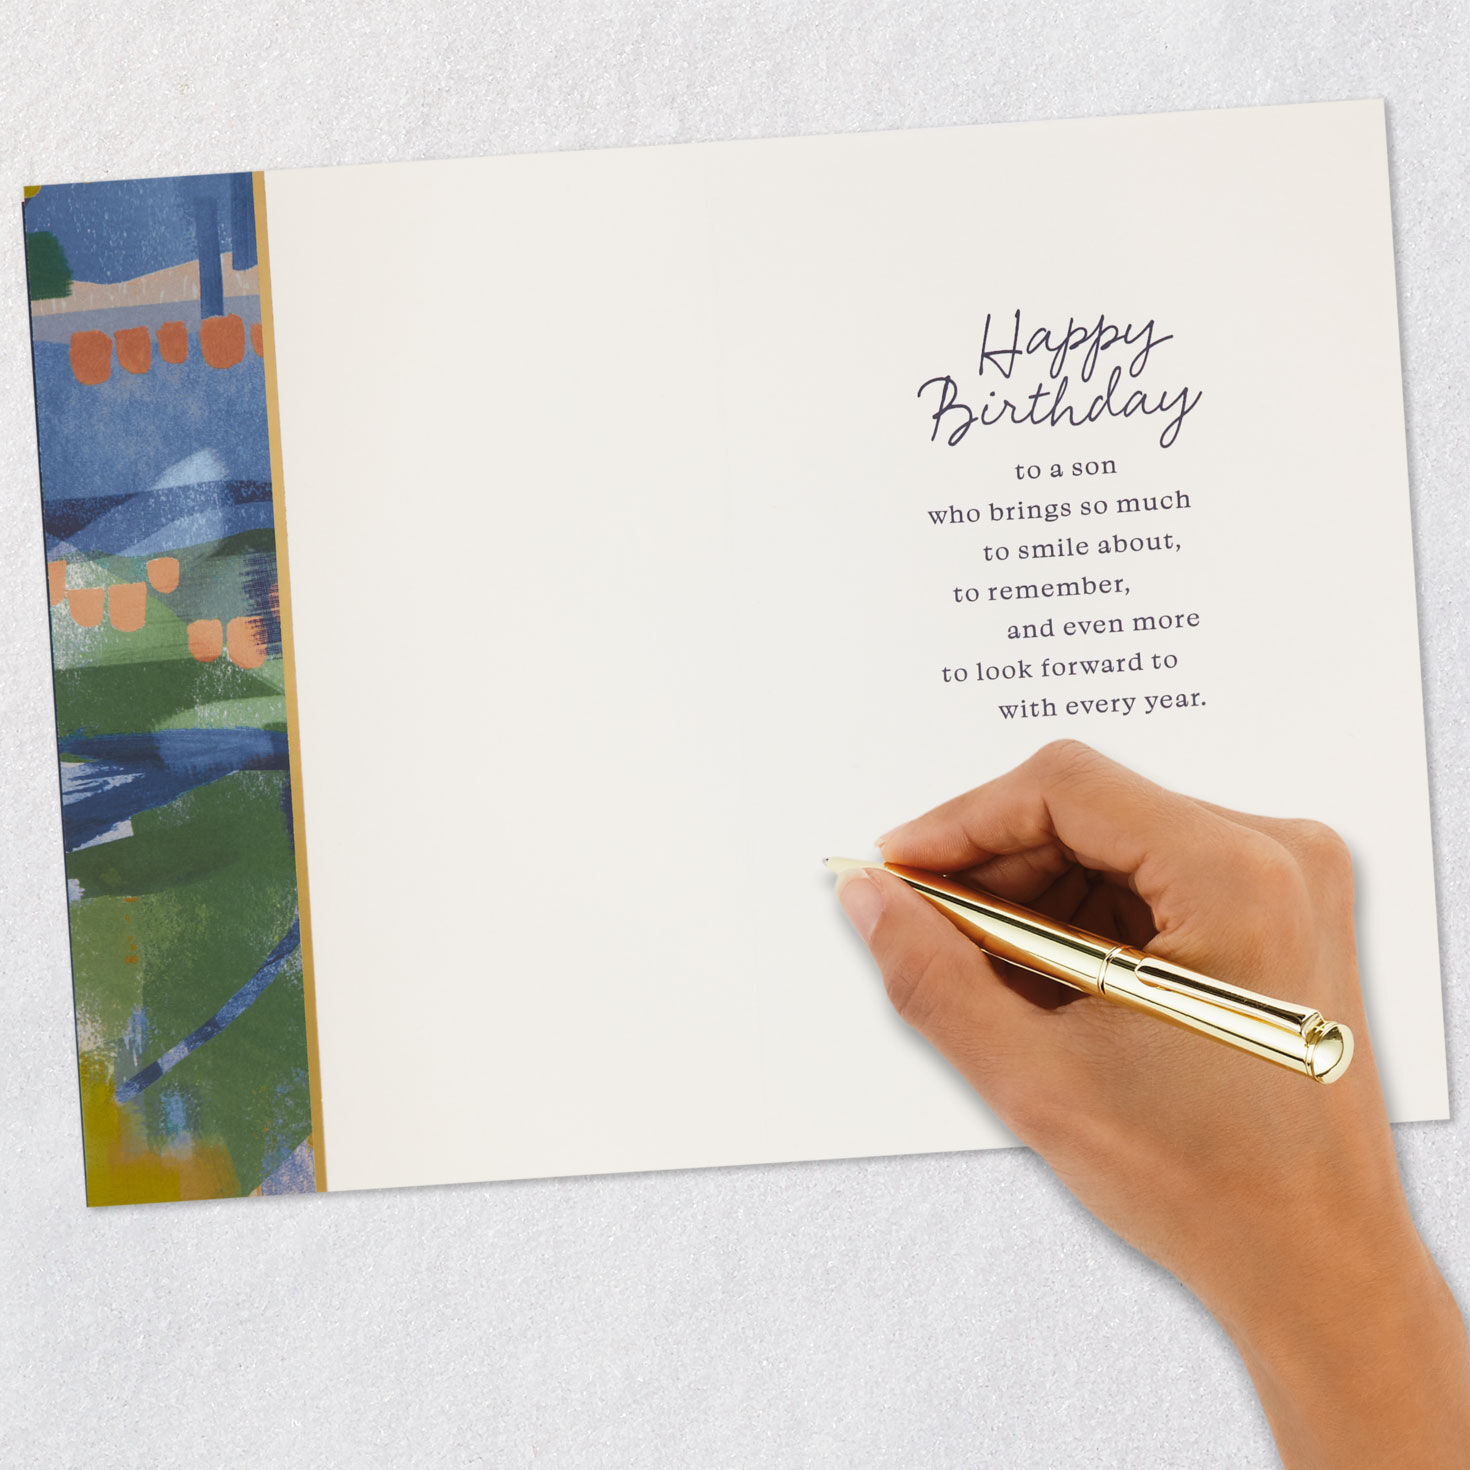 Happy
Birthday
to a son
who brings so much
to smile about,
to remember,
and even more
to look forward to
with every year.